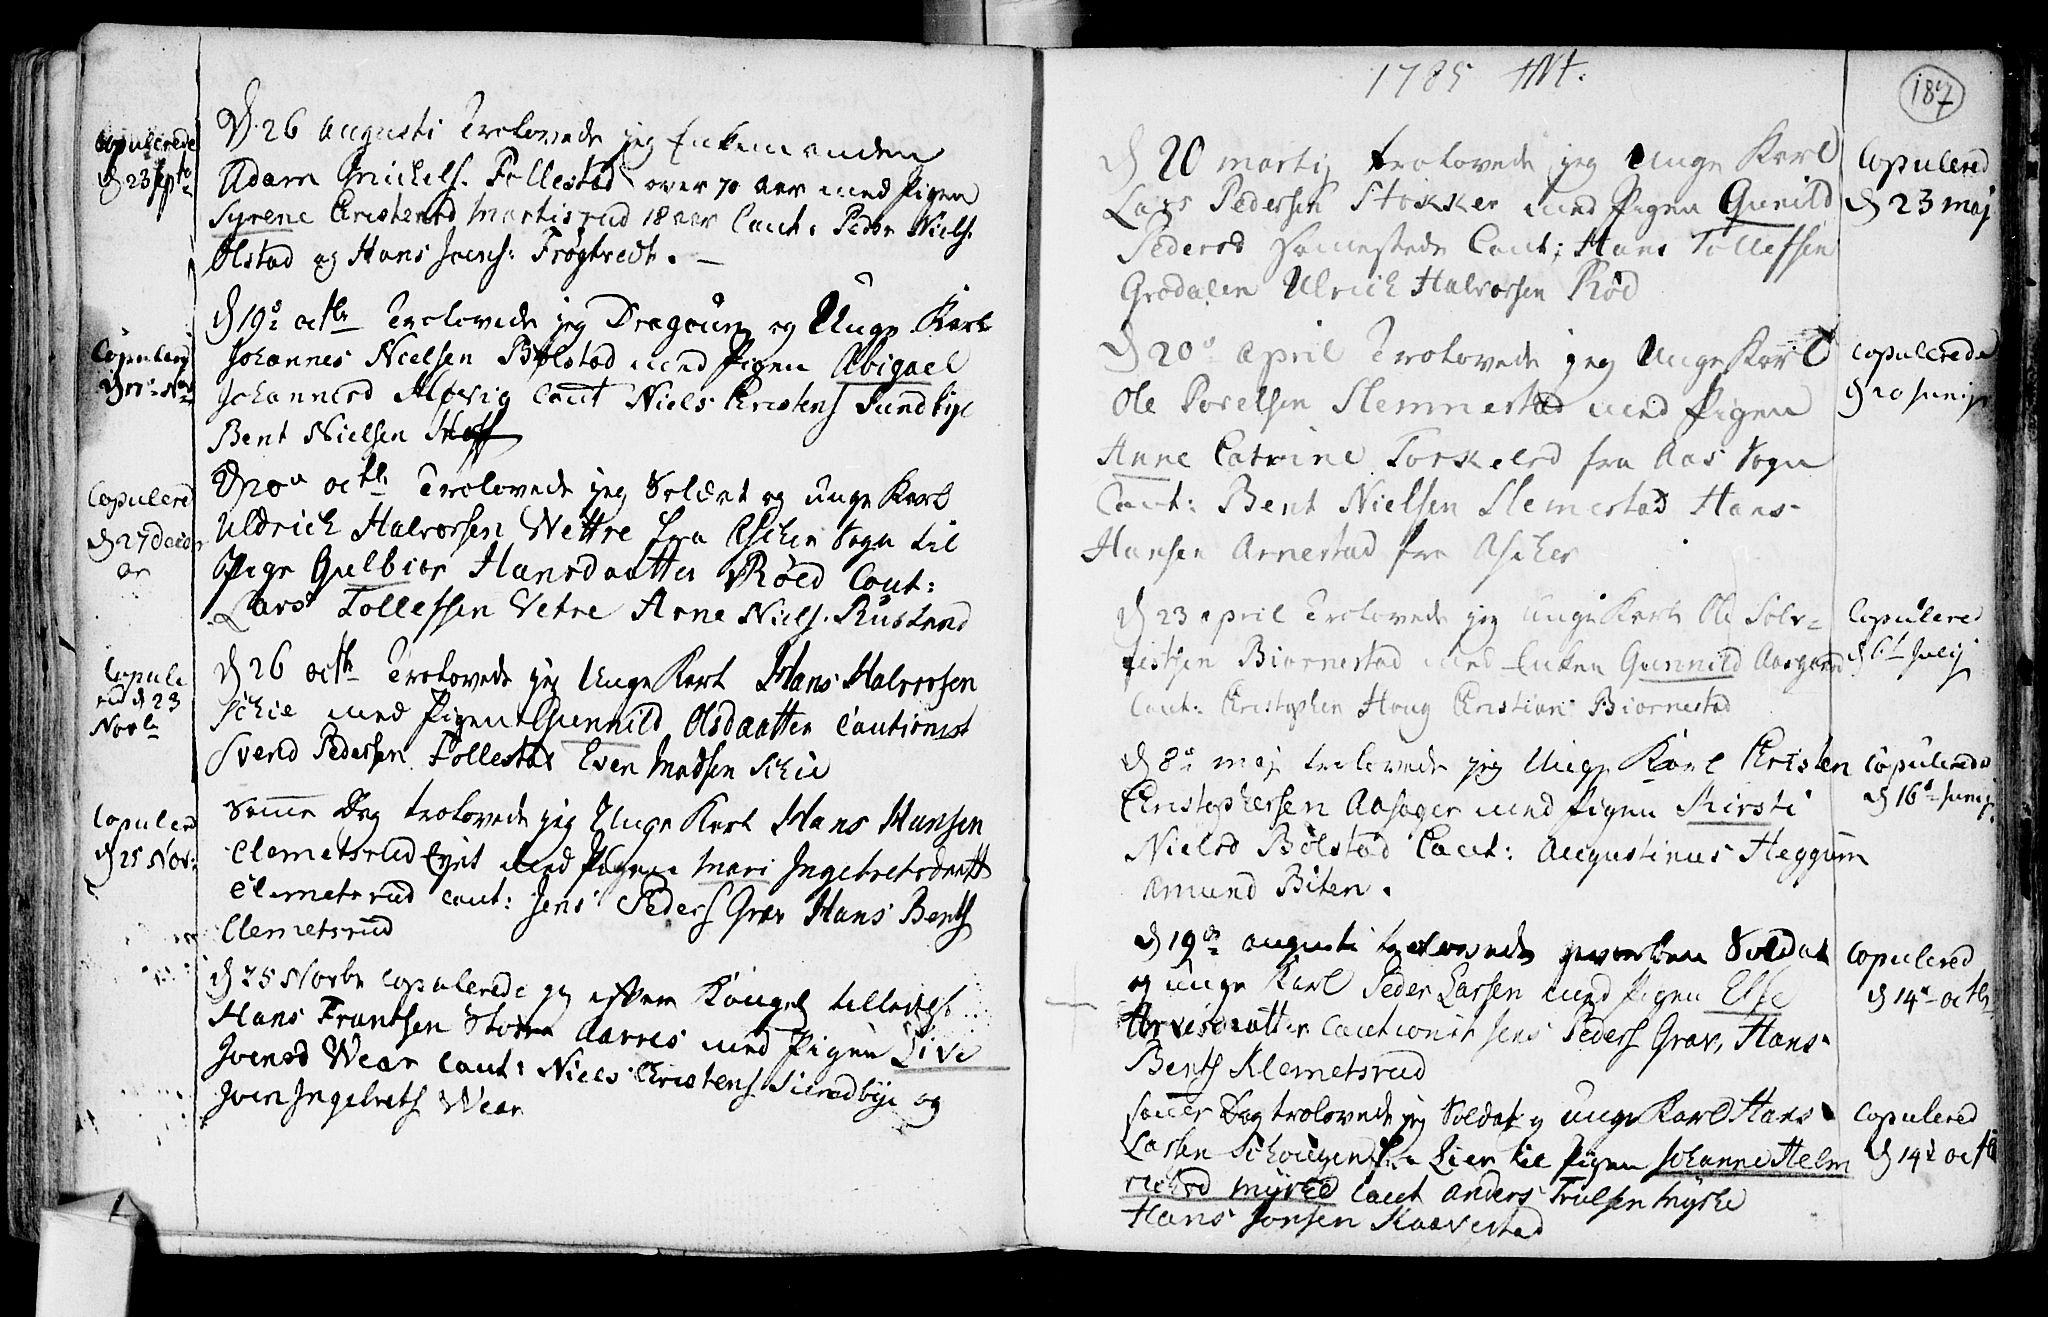 Copulerede
d 23 Septbr
D. 26 Augusti Trolovede jeg Enkemanden
Adam Michels. Follestad over 70 aar med Pigen
Syrene Christensd Mortisrud 18 aar Caut. Peder Niels.
Ølstad og Hans Joens: Frøgtvedt.
Copulerede
d 19de octbr Trolovede jeg Dragoun og Unge Karl
Johannes Nielsen Bølstad med Pigen Abigael
Johannesd Caut Niels Christens Sundbye
Bent Nielsen
Copulered
d 27 Decbr
d 20 octbr Trolovede jeg Soldat og unge Karl
Uldrich Halvorsen Wettre fra Ascher Sogn til
Pige Gulbior Hansdaatter Röed Caut:
Lars Tollefsen Vetre Arne Niels. Rustand
Copule
red d 23
Novbr
d 26 octbr Trolovede jeg Unge Karl Hans Halvorsen
Schie med Pigen Gunnild Olsdaatter Cautionist
Svend Pedersen Follestad Even Madsen Schie
Copulered
d 25 Nov:
Samme Dag trolovede jeg Unge Karl Hans Hansen
Clemetsrud Eyet med Pigen Mari Ingebretsdaatt
Clemetsrud Caut: Jens Peders Grav Hans Bents
Clemetsrud
d 25 Novbr Copulerede jeg efter Kongel tilladelse
Hans Frantsen Storm Aarnes med Pigen Live
Joensd Wear Caut: Niels Christens Sundbye og
Joen Ingebrets Wear
1785
187
d 20 martij trolovede jeg Unge Karl
Lars Pedersen Stokker med Pigen Gunild
Pedersd sammestede Caut: Hans Tollefsen
Grodalen Ulrich Halvorsen Röd
Copulered
d 23 maj
d 20 April Trolovede jeg Unge Karl
Ole Povelsen Slemmestad med Pigen
Anne Catrine Torskelsd fra Aas Sogn
Caut: Bent Nielsen Slemestad Hans
Hansen Arnestad fra Ascher
Copulerede
d 20 Junij
d 23 april Trolovede jeg Unge Karl Ole Solv=
festsen Biørnestad med Enken Gunnild Aasgaard
Caut: Christopher Houg Christian Biørnestad
Copulered
d 6t Julij
d 8de maj trolovede jeg Unge Karl Christen
Christophersen Aasager med Pigen Kirsti
Nielsd Bölstad Caut: Augustinus Heggum
Amund Biten.
Copulerede
d 16de Junij
d 19de augusti trolovede Soldat
og unge Karl Peder Larsen med Pigen Else
Arvesdaatter Cautionist Jens Peders Grav, Hans
Bents Klemetsrud
Copulered
d 14de octbr
samme Dag trolovede jeg Soldat og unge Karl Hans
Larsen fra Lier til Pigen Johanne Helm
richsd Myrhe Caut Anders Trulsen Myrhe
Hans Jonsen Kaarestad
Copulered
d 14de octbr